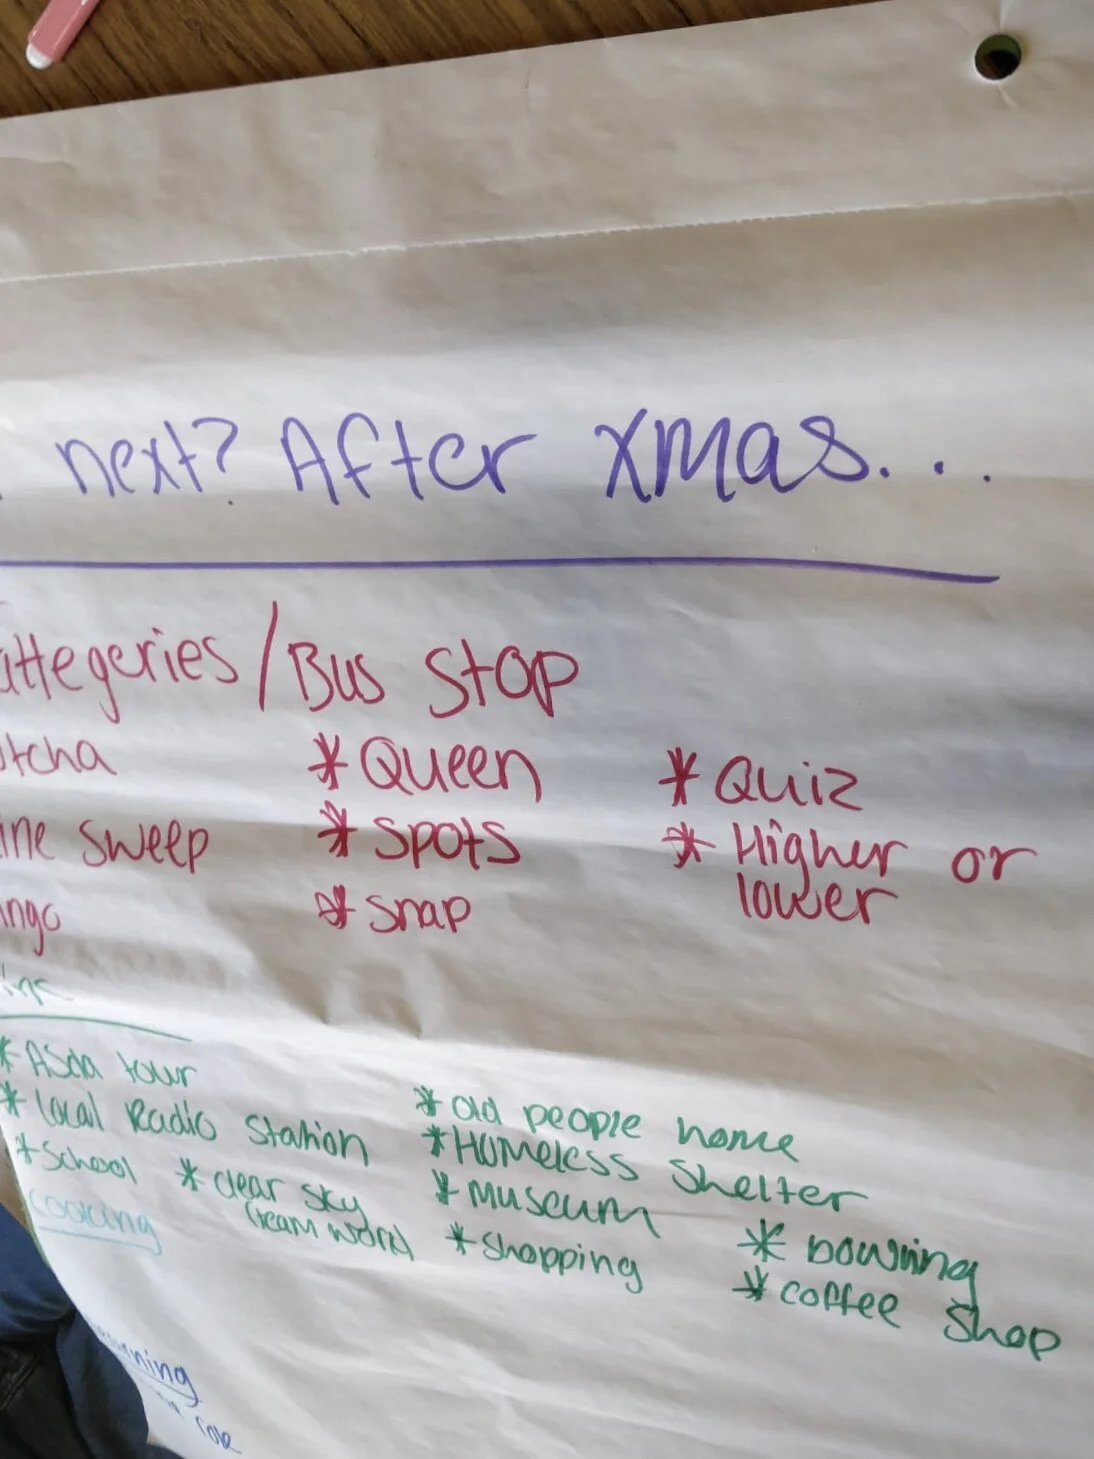 next? After xmas...
attegeries / Bus Stop
tcha * Queen * Quiz
ine sweep * Spots * Higher or
lower
ingo * Snap
* Asda tour
* Local Radio Station * old people home
* School * clear sky * Homeless Shelter
(team work) * Museum
Cooking * Shopping * bowling
* coffee Shop